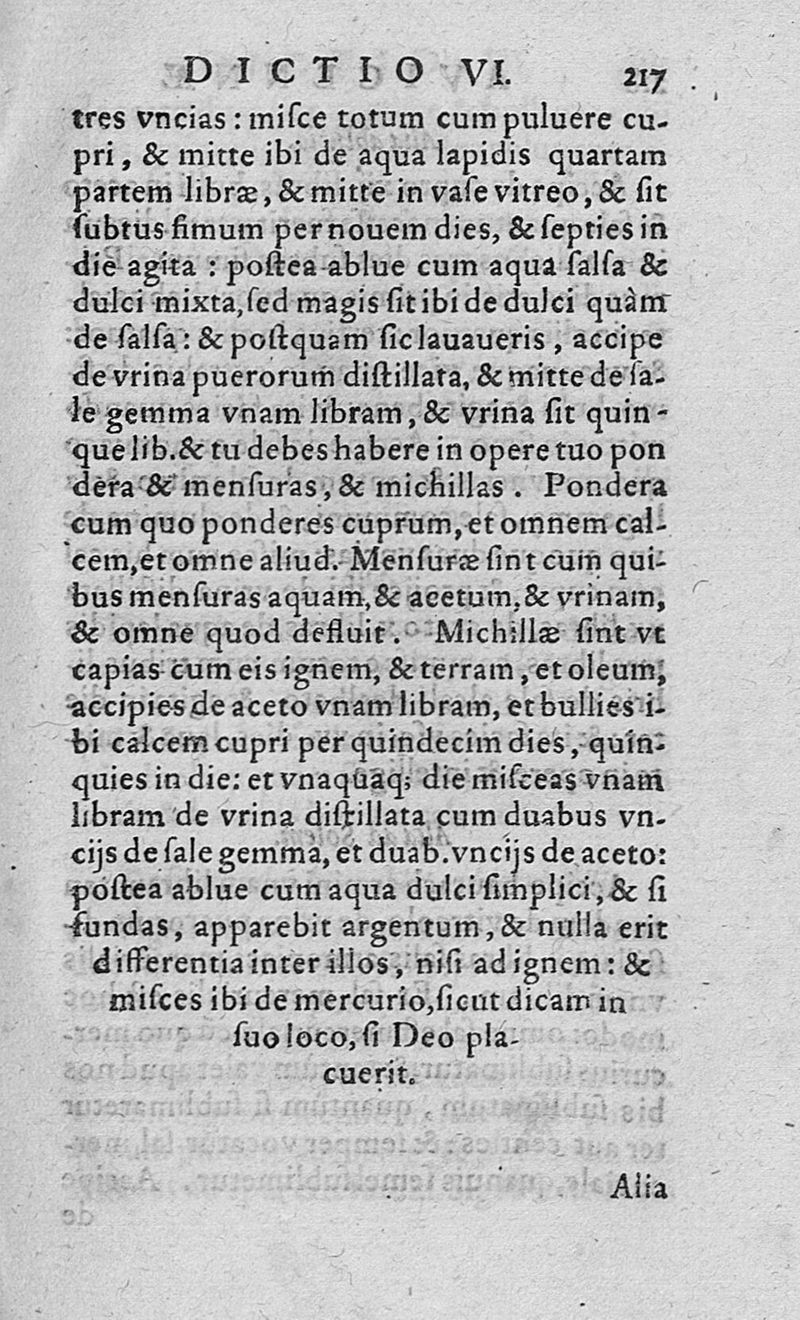 DICTIO VI. 217
tres vncias : miſce totum cum puluere cu-
pri, & mitte ibi de aqua lapidis quartam
partem libræ, & mitte in vaſe vitreo, & ſit
ſubtus fimum per nouem dies, & ſepties in
die agita : poſtea ablue cum aqua ſalſa &
dulci mixta, ſed magis ſit ibi de dulci quàm
de ſalſa : & poſtquam ſic lauaueris, accipe
de vrina puerorum diſtillata, & mitte de ſa-
le gemma vnam libram, & vrina ſit quin-
que lib. & tu debes habere in opere tuo pon
dera & menſuras, & michillas. Pondera
cum quo ponderes cuprum, et omnem cal-
cem, et omne aliud. Menſuræ ſint cum qui-
bus menſuras aquam, & acetum, & vrinam,
& omne quod defluit. Michillæ ſint vt
capias cum eis ignem, & terram, et oleum,
accipies de aceto vnam libram, et bullies i-
bi calcem cupri per quindecim dies, quin-
quies in die: et vnaquaq; die miſceas vnam
libram de vrina diſtillata cum duabus vn-
cijs de ſale gemma, et duab. vncijs de aceto:
poſtea ablue cum aqua dulci ſimplici, & ſi
fundas, apparebit argentum, & nulla erit
differentia inter illos, niſi ad ignem : &
miſces ibi de mercurio, ſicut dicam in
ſuo loco, ſi Deo pla-
cuerit.
Alia